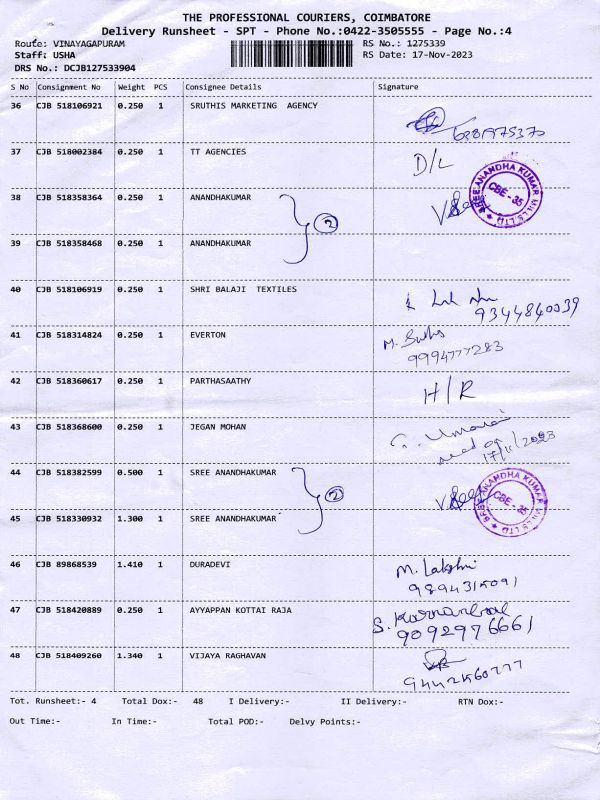 THE PROFESSIONAL COURIERS, COIMBATORE
Delivery Runsheet - SPT - Phone No.:0422-3505555 - Page No.:4
Route: VINAYAGAPURAM RS No.: 1275339
Staff: USHA RS Date: 17-Nov-2023
DRS No.: DCJB127533904
S No Consignment No Weight PCS Consignee Details Signature
36 CJB 518106921 0.250 1 SRUTHIS MARKETING AGENCY
37 CJB 518002384 0.250 1 TT AGENCIES D/L
38 CJB 518358364 0.250 1 ANANDHAKUMAR
2
SREE ANANDHA KUMAR MILLS LTD CBE - 35
39 CJB 518358468 0.250 1 ANANDHAKUMAR
40 CJB 518106919 0.250 1 SHRI BALAJI TEXTILES
9344840039
41 CJB 518314824 0.250 1 EVERTON M.
9994777283
42 CJB 518360617 0.250 1 PARTHASAATHY H/R
43 CJB 518368600 0.250 1 JEGAN MOHAN
17/11/2023
44 CJB 518382599 0.500 1 SREE ANANDHAKUMAR
2
SREE ANANDHA KUMAR MILLS LTD CBE - 35
45 CJB 518330932 1.300 1 SREE ANANDHAKUMAR
46 CJB 89868539 1.410 1 DURADEVI M. Lakshmi
9894315091
47 CJB 518420889 0.250 1 AYYAPPAN KOTTAI RAJA S.
9092976661
48 CJB 518409260 1.340 1 VIJAYA RAGHAVAN
Tot. Runsheet:- 4 Total Dox:- 48 I Delivery:- II Delivery:- RTN Dox:-
Out Time:- In Time:- Total POD:- Delvy Points:-